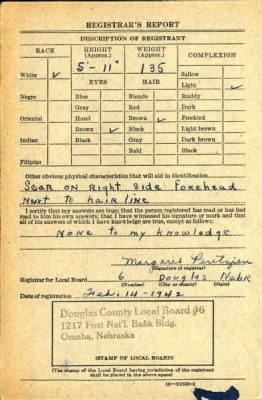 REGISTRAR'S REPORT
DESCRIPTION OF REGISTRANT
RACE HEIGHT (Approx.) WEIGHT (Approx.) COMPLEXION
5'-11" 135
White ✓ Sallow
EYES HAIR Light ✓
Negro Blue Blonde Ruddy
Gray Red Dark
Oriental Hazel Brown ✓ Freckled
Brown ✓ Black Light brown
Indian Black Gray Dark brown
Bald Black
Filipino
Other obvious physical characteristics that will aid in identification
Scar on Right Side Forehead
Next to hair line
I certify that my answers are true; that the person registered has read or has had
read to him his own answers; that I have witnessed his signature or mark and that
all of his answers of which I have knowledge are true, except as follows:
None to my Knowledge
Margaret
(Signature of registrar)
Registrar for Local Board 6 Douglas Nebr
(Number) (City or county) (State)
Date of registration Feb. 14-1942
Douglas County Local Board #6
1217 First Nat'l. Bank Bldg.
Omaha, Nebraska
STAMP OF LOCAL BOARD
(The stamp of the Local Board having jurisdiction of the registrant
shall be placed in the above space)